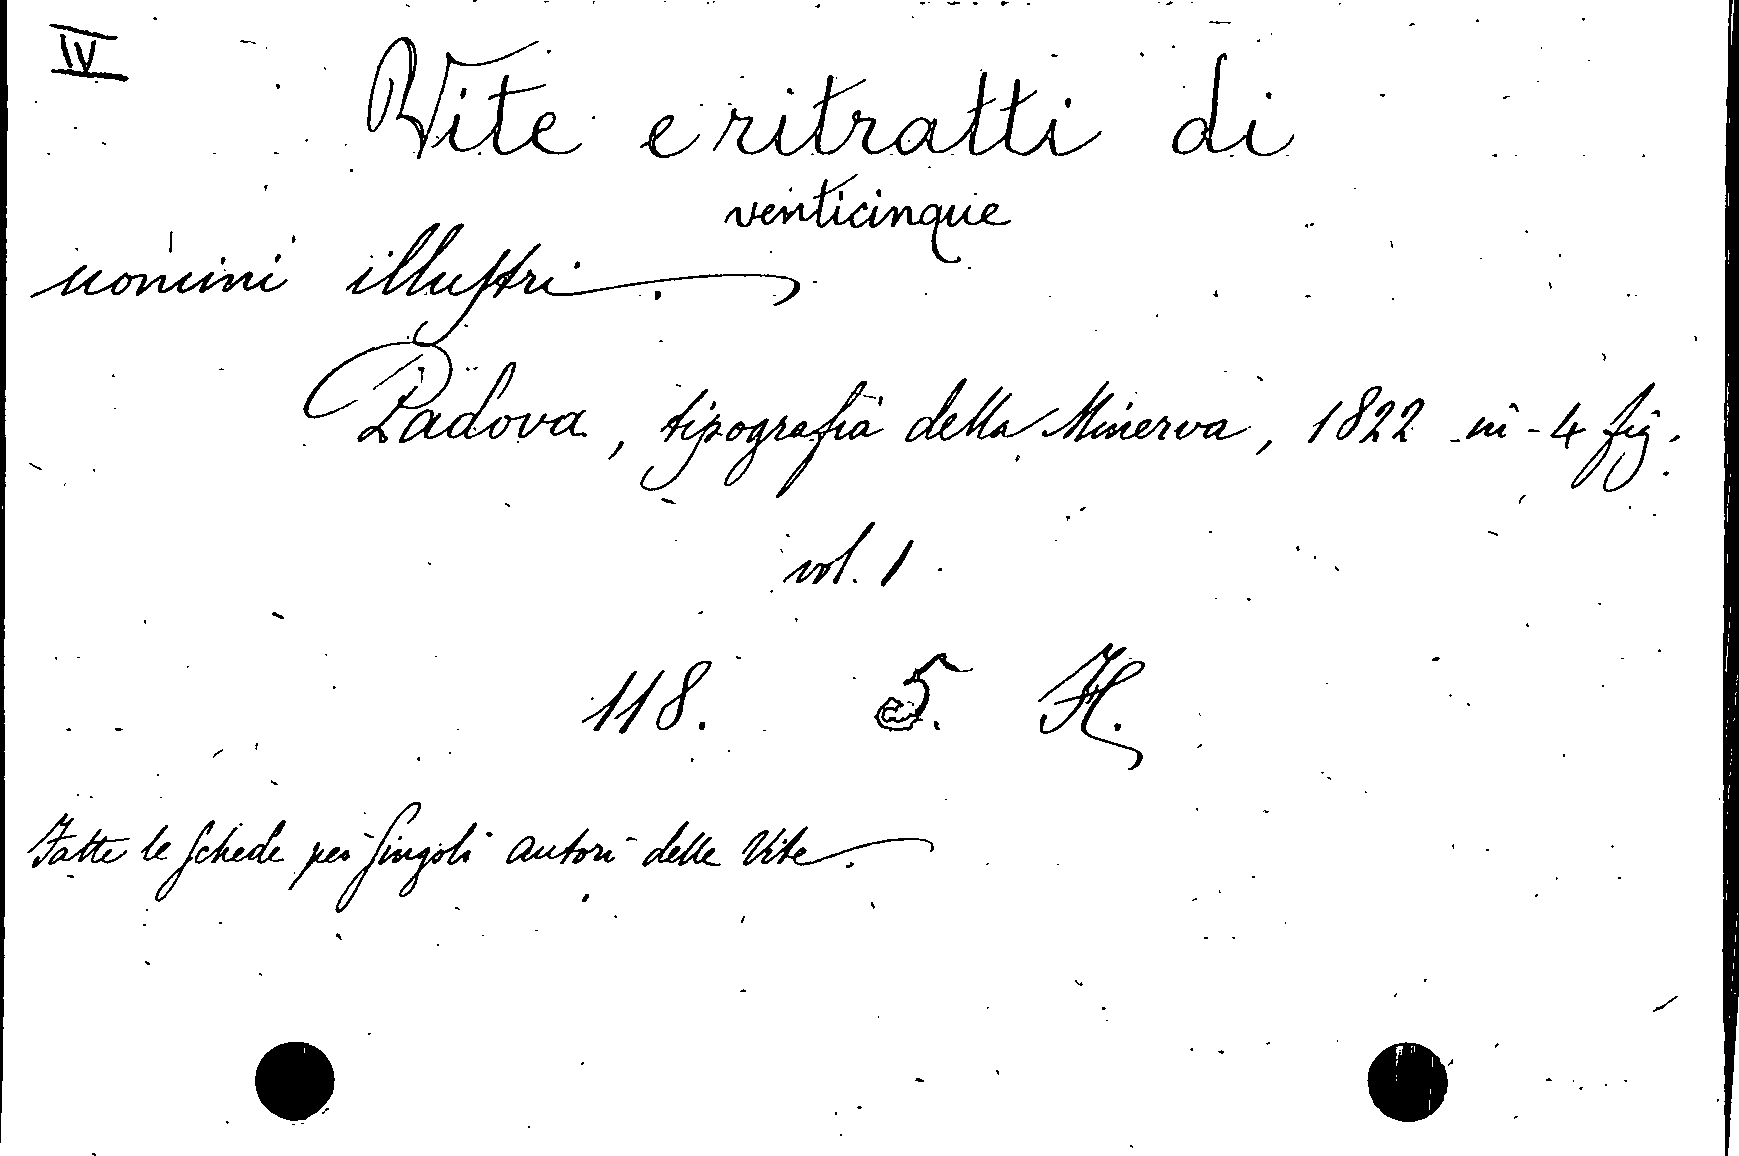 IV
Vite e ritratti di
venticinque
uomini illustri.
Padova, tipografia della Minerva, 1822 in-4 fig.
vol. 1
118. 5. H.
Fatte le schede pei singoli autori delle Vite.